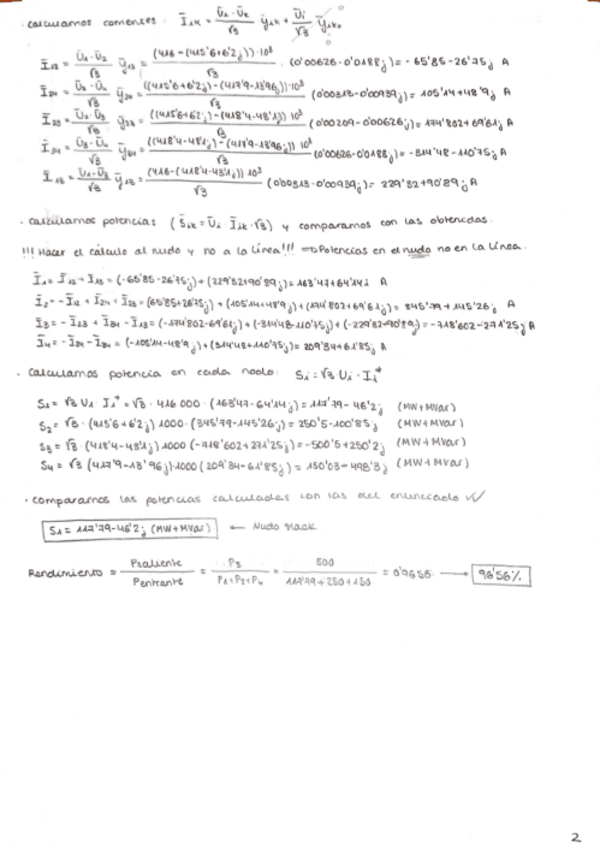 · Calculamos corrientes: Īik = (Ūi - Ūk)/√3 ȳik + Ūi/√3 ȳiko
Ī12 = (Ū1 - Ū2)/√3 ȳ12 = ((416 - (415'6+6'2j))·10³)/√3 · (0'00626 - 0'0188j) = -65'85 - 26'75j A
Ī24 = (Ū2 - Ū4)/√3 ȳ24 = (((415'6+6'2j) - (417'9-13'96j))·10³)/√3 (0'00313 - 0'00939j) = 105'14 + 48'9j A
Ī23 = (Ū2 - Ū3)/√3 ȳ23 = (((415'6+6'2j) - (418'4-48'1j)) 10³)/√3 (0'00209 - 0'00626j) = 174'802 + 69'61j A
Ī34 = (Ū3 - Ū4)/√3 ȳ34 = (((418'4-48'1j) - (417'9-13'96j)) 10³)/√3 (0'00626 - 0'0188j) = -314'48 - 110'75j A
Ī13 = (Ū1 - Ū3)/√3 ȳ13 = ((416 - (418'4-48'1j)) 10³)/√3 (0'00313 - 0'00939j) = 229'32 + 90'89j A
· Calculamos potencias (S̄ik = Ūi · Īik · √3) y comparamos con las obtenidas.
!!! Hacer el cálculo al nudo y no a la línea!!! ⇒ Potencias en el nudo no en la línea.
Ī1 = Ī12 + Ī13 = (-65'85 - 26'75j) + (229'32 + 90'89j) = 163'47 + 64'14j A
Ī2 = -Ī12 + Ī24 + Ī23 = (65'85 + 26'75j) + (105'14 + 48'9j) + (174'802 + 69'61j) = 345'79 + 145'26j A
Ī3 = -Ī23 + Ī34 - Ī13 = (-174'802 - 69'61j) + (-314'48 - 110'75j) + (-229'32 - 90'89j) = -718'602 - 271'25j A
Ī4 = -Ī24 - Ī34 = (-105'14 - 48'9j) + (314'48 + 110'75j) = 209'34 + 61'85j A
· Calculamos potencia en cada nodo: Si = √3 Ui · Ii*
S1 = √3 U1 · I1* = √3 · 416 000 · (163'47 - 64'14j) = 117'79 - 46'2j (MW+MVar)
S2 = √3 · (415'6 + 6'2j) 1000 · (345'79 - 145'26j) = 250'5 - 100'85j (MW+MVar)
S3 = √3 · (418'4 - 48'1j) 1000 (-718'602 + 271'25j) = -500'5 + 250'2j (MW+MVar)
S4 = √3 (417'9 - 13'96j) · 1000 (209'34 - 61'85j) = 150'03 - 498'3j (MW+MVar)
· Comparamos las potencias calculadas con las del enunciado ✓✓
S1 = 117'79 - 46'2j (MW+MVar) ← Nudo slack
Rendimiento = Psaliente/Pentrante = P3/(P1+P2+P4) = 500/(117'79 + 250 + 150) = 0'9656 → 96'56%
2